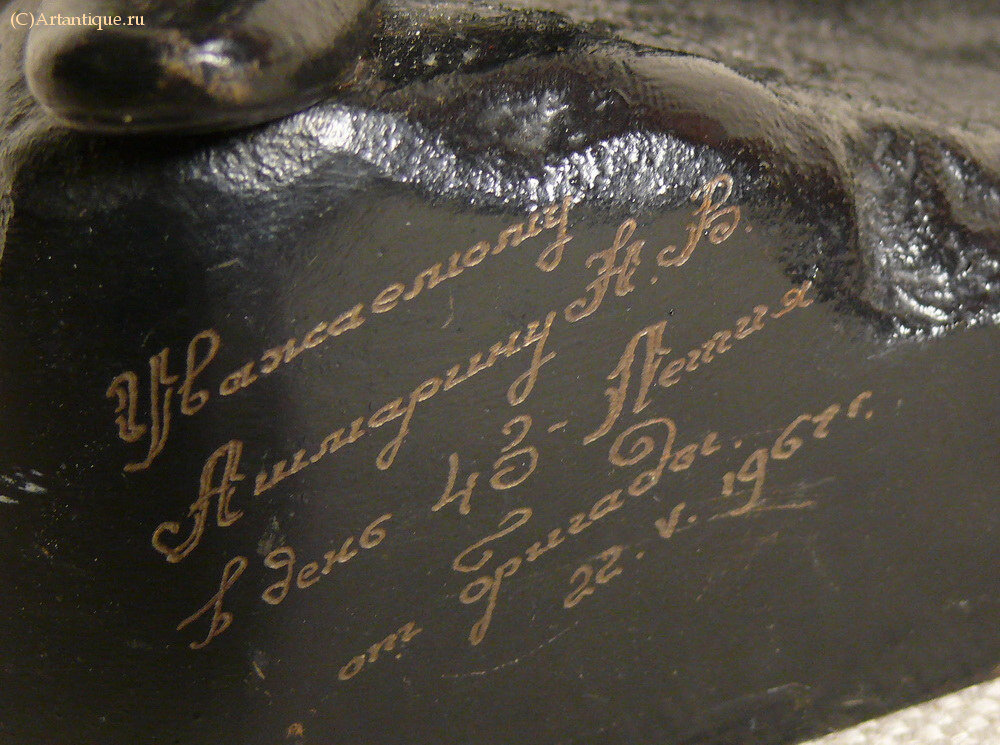 (C)Artantique.ru
Уважаемому
Ашмарину Н. В.
в день 43-Летия
от бригады.
22. V. 1967 г.